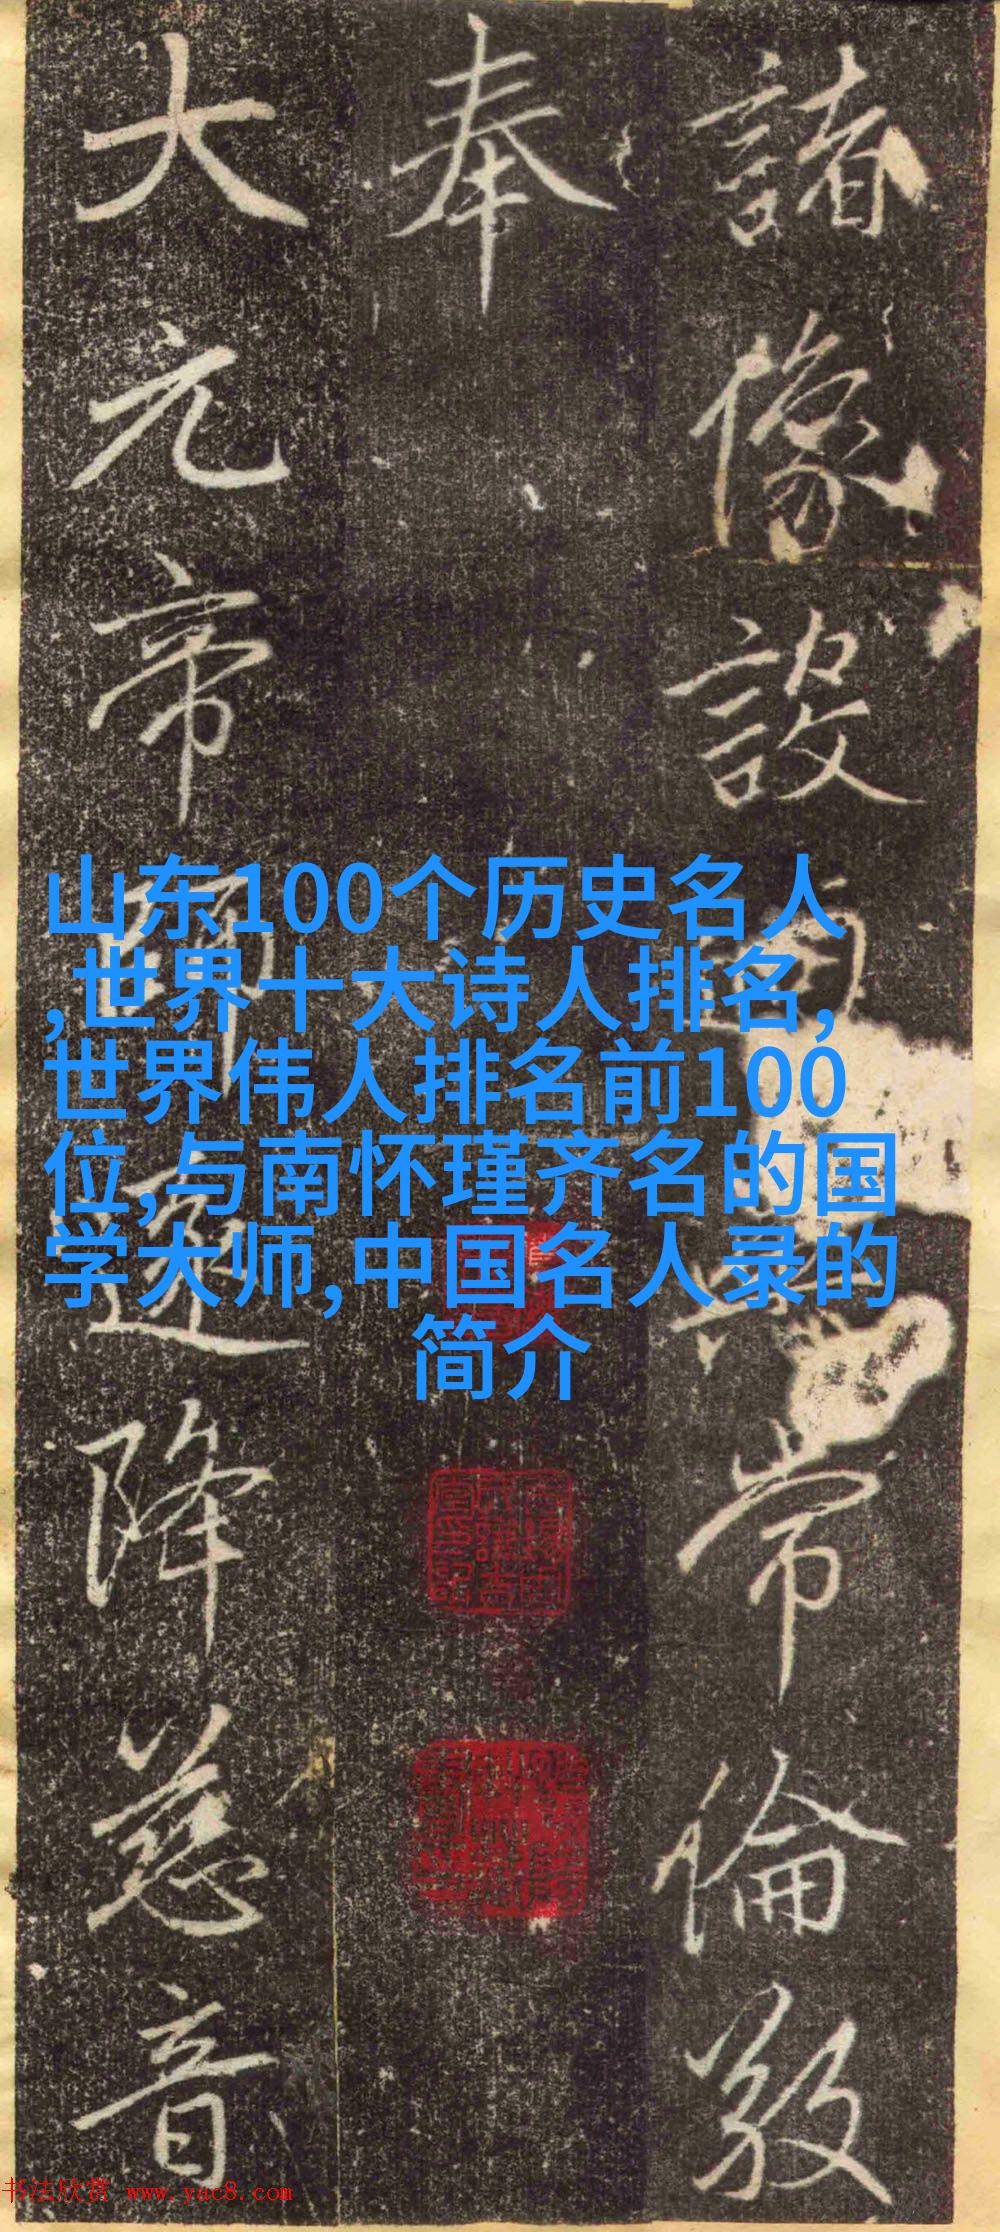 諸像設
常倫敎
奉
大元帝
降慈音
山东100个历史名人
,世界十大诗人排名,
世界伟人排名前100
位,与南怀瑾齐名的国
学大师,中国名人录的
简介
书法欣赏 www.yac8.com